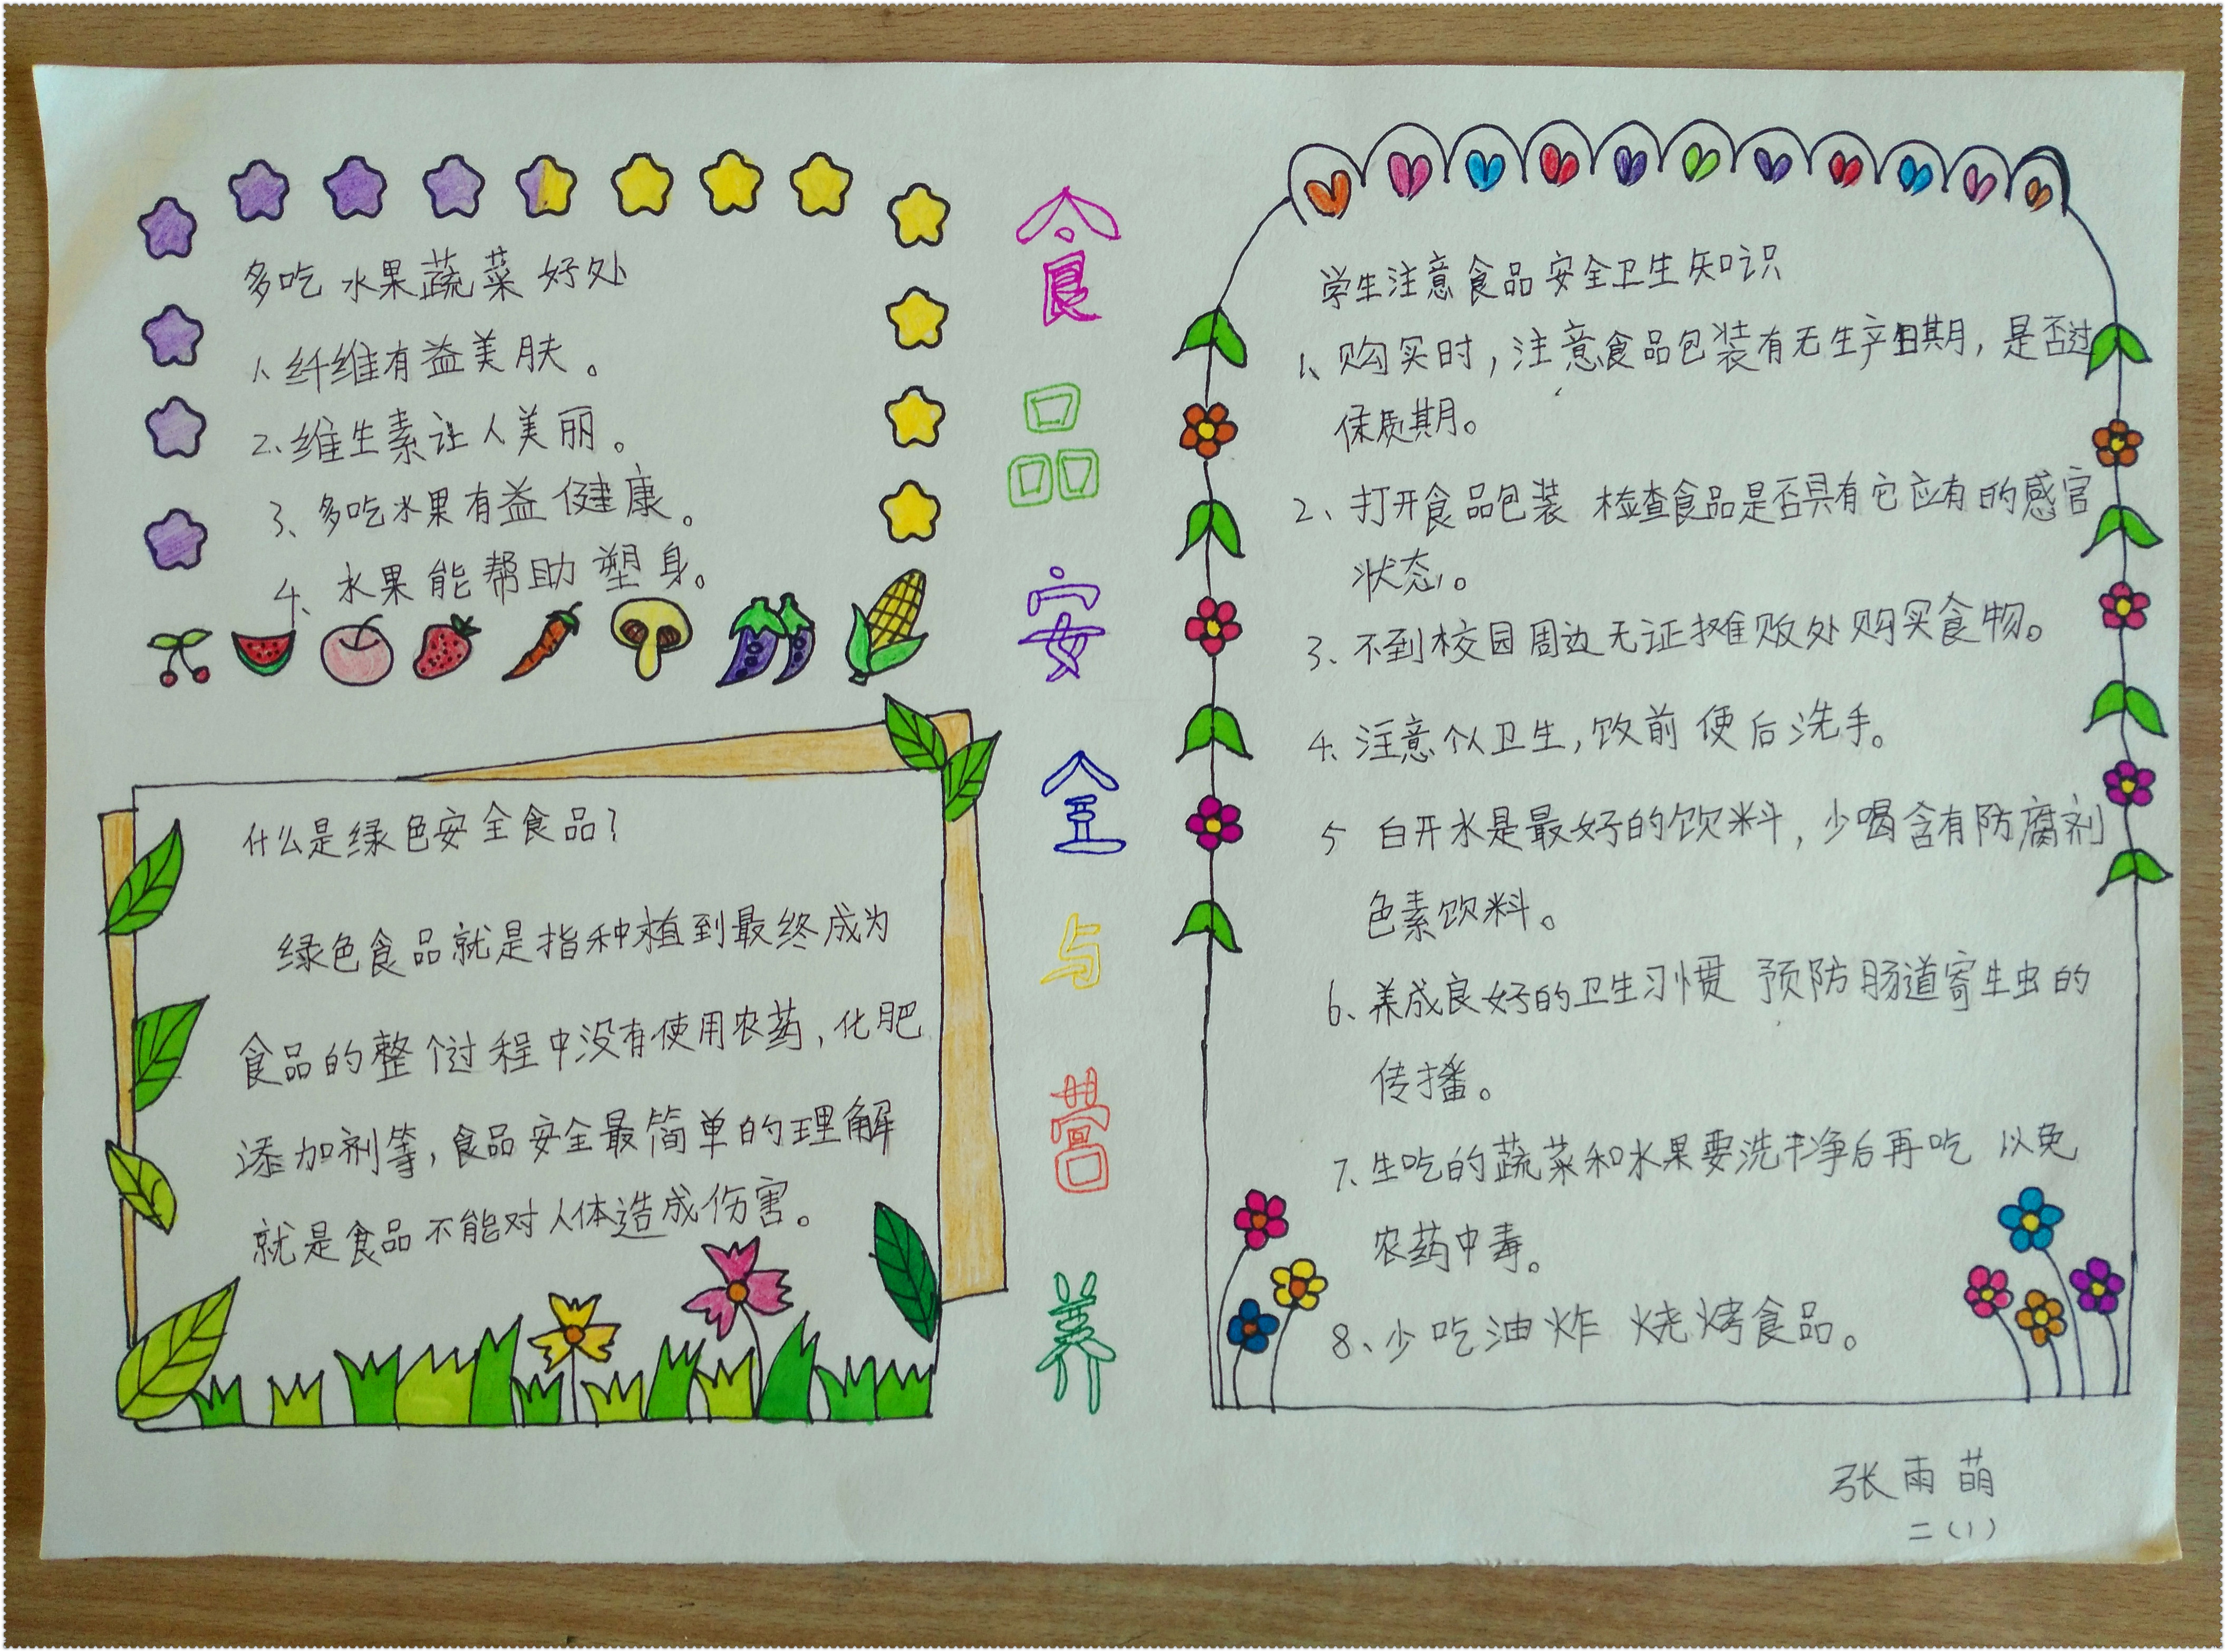 多吃水果蔬菜好处
1、纤维有益美肤。
2、维生素让人美丽。
3、多吃水果有益健康。
4、水果能帮助塑身。
什么是绿色安全食品?
绿色食品就是指种植到最终成为
食品的整个过程中没有使用农药,化肥
添加剂等,食品安全最简单的理解
就是食品不能对人体造成伤害。
食品安全与营养
学生注意食品安全卫生知识
1、购买时,注意食品包装有无生产日期,是否过
保质期。
2、打开食品包装 检查食品是否具有它应有的感官
状态。
3、不到校园周边无证摊贩处购买食物。
4、注意个人卫生,饭前便后洗手。
5 白开水是最好的饮料,少喝含有防腐剂
色素饮料。
6、养成良好的卫生习惯 预防肠道寄生虫的
传播。
7、生吃的蔬菜和水果要洗干净后再吃 以免
农药中毒。
8、少吃油炸 烧烤食品。
张雨萌
二(1)